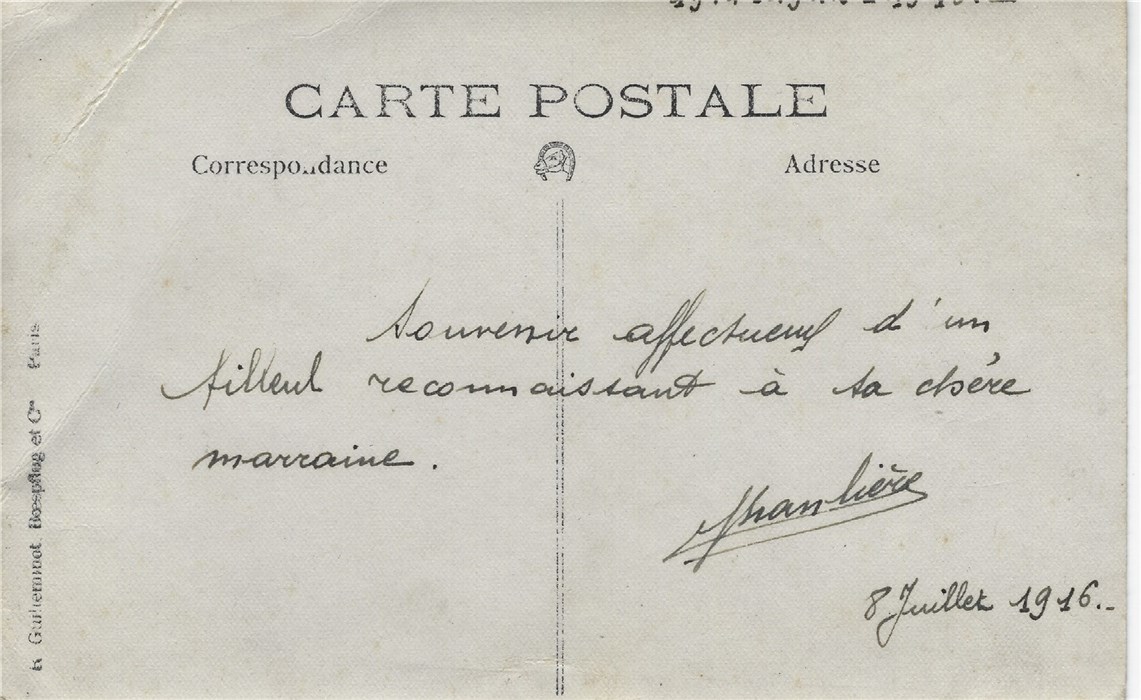 CARTE POSTALE
Correspondance
Adresse
Souvenir affectueux d'un
filleul reconnaissant à sa chère
marraine.
8 Juillet 1916.-
R. Guilleminot, Bœspflug et Cie Paris